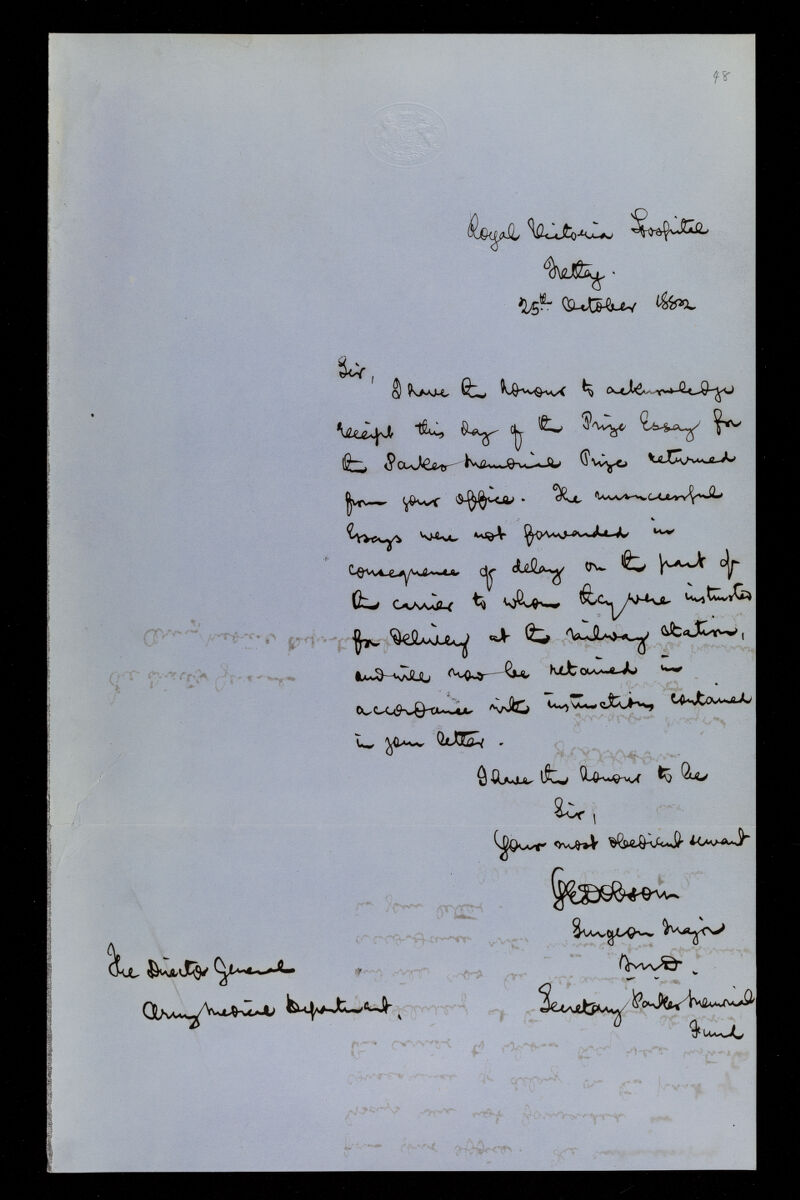 48
Royal Victoria Hospital
Netley.
25th October 1882
Sir,
I have the honour to acknowledge
receipt this day of the Prize Essay for
the Parkes Memorial Prize returned
from your office. The unsuccessful
Essays were not forwarded in
consequence of delay on the part of
the carrier to whom they were instructed
for delivery at the railway station,
and will now be retained in
accordance with instructions contained
in your letter.
I have the honour to be
Sir,
Your most obedient servant
GEDobson
Surgeon Major
The Director General
Army Medical Department.
Secretary Parkes Memorial
Fund